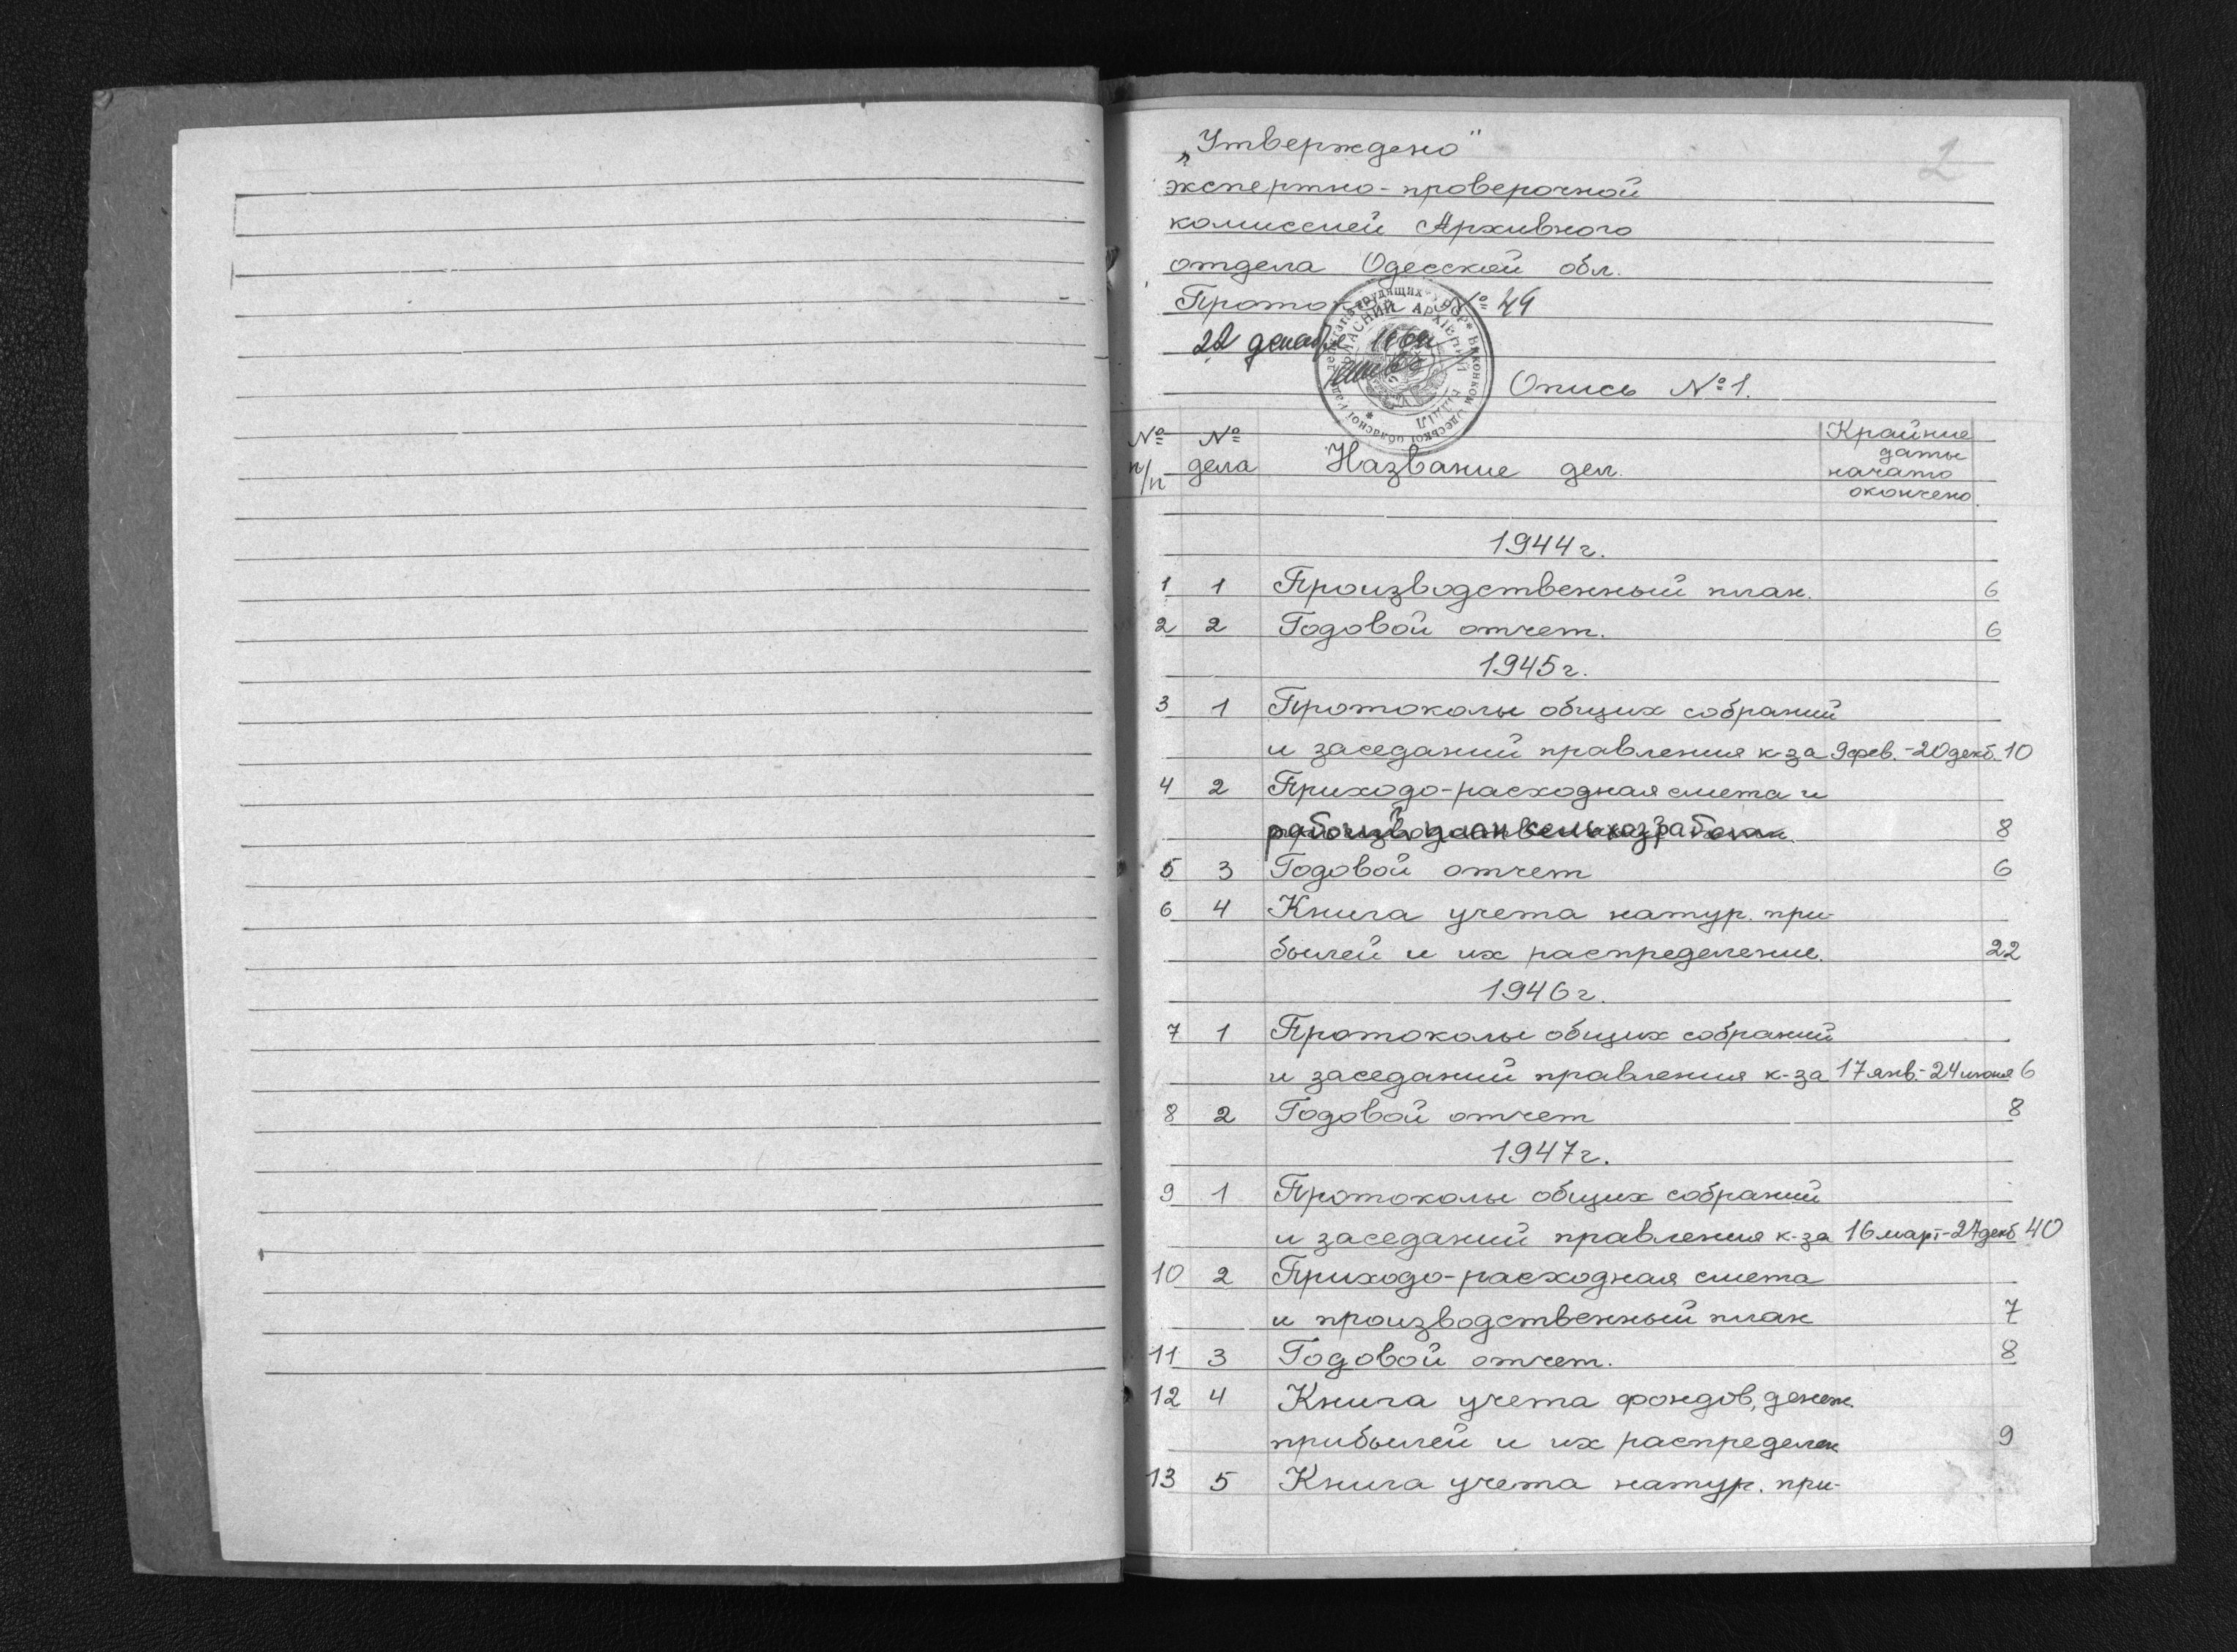 2
„Утверждено"
экспертно-проверочной
комиссией Архивного
отдела Одесской обл.
№ 44
22
Опись №1.
№ п/п № дела Название дел. Крайние даты начато окончено
1944г.
1 1 Производственный план. 6
2 2 Годовой отчет. 6
1945г.
3 1 Протоколы общих собраний
и заседаний правления к-за 9фев.-20декб. 10
4 2 Приходо-расходная смета и
рабочий план 8
5 3 Годовой отчет 6
6 4 Книга учета натур. при-
былей и их распределение. 22
1946г.
7 1 Протоколы общих собраний
и заседаний правления к-за 17янв.-24июня 6
8 2 Годовой отчет 8
1947г.
9 1 Протоколы общих собраний
и заседаний правления к-за 16март-27декб 40
10 2 Приходо-расходная смета
и производственный план 7
11 3 Годовой отчет. 8
12 4 Книга учета фондов, денеж.
прибылей и их распределен 9
13 5 Книга учета натур. при-